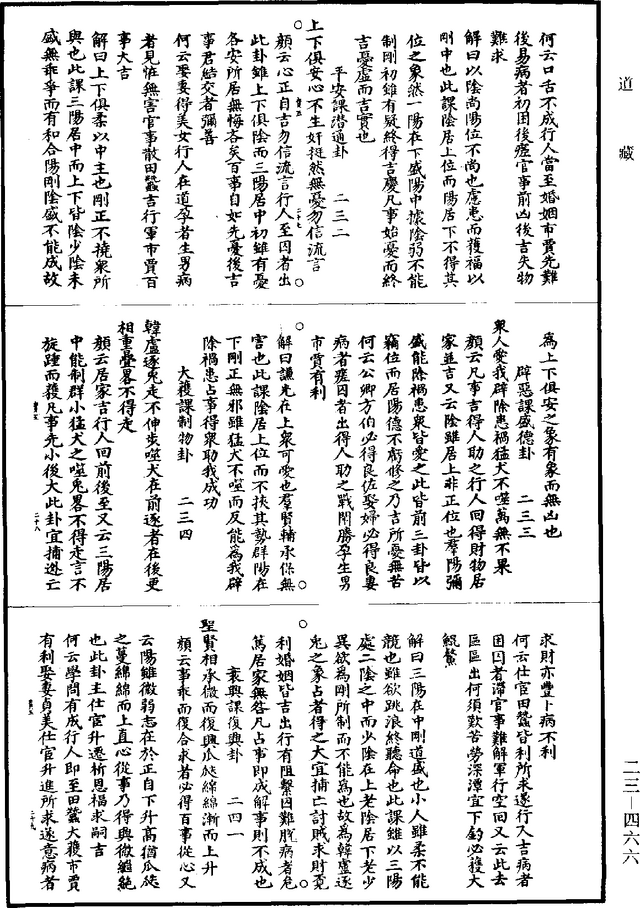 道藏
何云口舌不成行人當至婚姻市賈先難
後易病者初困後瘥官事前凶後吉失物
難求
解曰以陰尚陽位不尚也慮患而獲福以
剛中也此課陰居上位而陽居下不得其
位之象然一陽在下盛陽中據陰弱不能
制剛初雖有疑終得吉慶凡事始憂而終
吉憂虛而吉實也
平安課潛通卦 二三二
上下俱安心不生奸挺然無憂勿信流言
顏云心正自吉勿信流言行人至囚者出
此卦雖上下俱陰而三陽居中初雖有憂
各安所居無悔吝矣百事自如先憂後吉
事君結交者彌善
何云娶妻得美女行人在道孕者生男病
者見恠無害官事散田蠶吉行軍市賈百
事大吉
解曰上下俱柔以中主也剛正不撓衆所
與也此課三陽居中而上下皆陰少陰未
盛無乖爭而有和合陽剛陰盛不能成故
爲上下俱安之象有象而無凶也
辟惡課盛德卦 二三三
衆人愛我辟除患禍猛犬不噬萬無不果
顏云凡事吉得人助之行人囘得財物居
家並吉又云陰雖居上非正位也羣陽彌
盛能除禍患衆皆愛之此皆前三卦皆以
竊位而居陽德不虧修之乃吉所憂無苦
何云公卿方伯必得良佐娶婦必得良妻
病者瘥囚者出得人助之戰鬭勝孕生男
市賈有利
解曰謙光在上衆可愛也羣賢輔承保無
害也此課陰居上位而不挾其勢群陽在
下剛正無邪雖猛犬不噬而反能爲我辟
除禍患占事得衆助我成功
大獲課制物卦 二三四
韓盧逐兎走不伸步噬犬在前逐者在後更
相重疊畧不得走
顏云居家吉行人囘前後至又云三陽居
中能制群小猛犬之噬兎畧不得走言不
旋踵而獲凡事先小後大此卦宜捕逃亡
求財亦豐卜病不利
何云仕官田蠶皆利所求遂行人吉病者
困囚者滯官事難解軍行空囘又云此去
區區出何須歎苦勞深潭宜下釣必獲大
鯤鰲
解曰三陽在中剛道盛也小人雖柔不能
競也雖欲跳浪終聽命也此課雖以三陽
處二陰之中而少陰在上老陰居下老少
異欲爲剛所制而不能爲也故爲韓盧逐
兎之象占者得之大宜捕亡討賊求財覔
利婚姻皆吉出行有阻繫囚難脫病者危
篤居家無咎凡占事即成解事則不成也
衰興課復興卦 二四一
聖賢相承微而復興瓜瓞綿綿漸而上升
顏云事乖而復合求者必得百事從心又
云陽雖微弱志在於正自下升高猶瓜瓞
之蔓綿綿而上直心從事乃得興微繼絶
也此卦主仕宦升遷祈恩福求嗣吉
何云學問有成行人即至田蠶大獲市賈
有利娶妻貞美仕宦升進所求遂意病者
二三—四六六